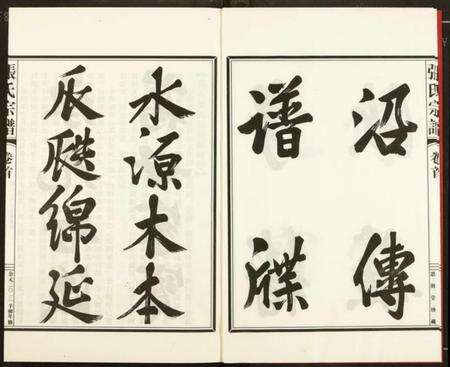 張氏宗譜 卷首
沿傳
谱牒
水源木本
瓜瓞綿延
張氏宗譜 卷首